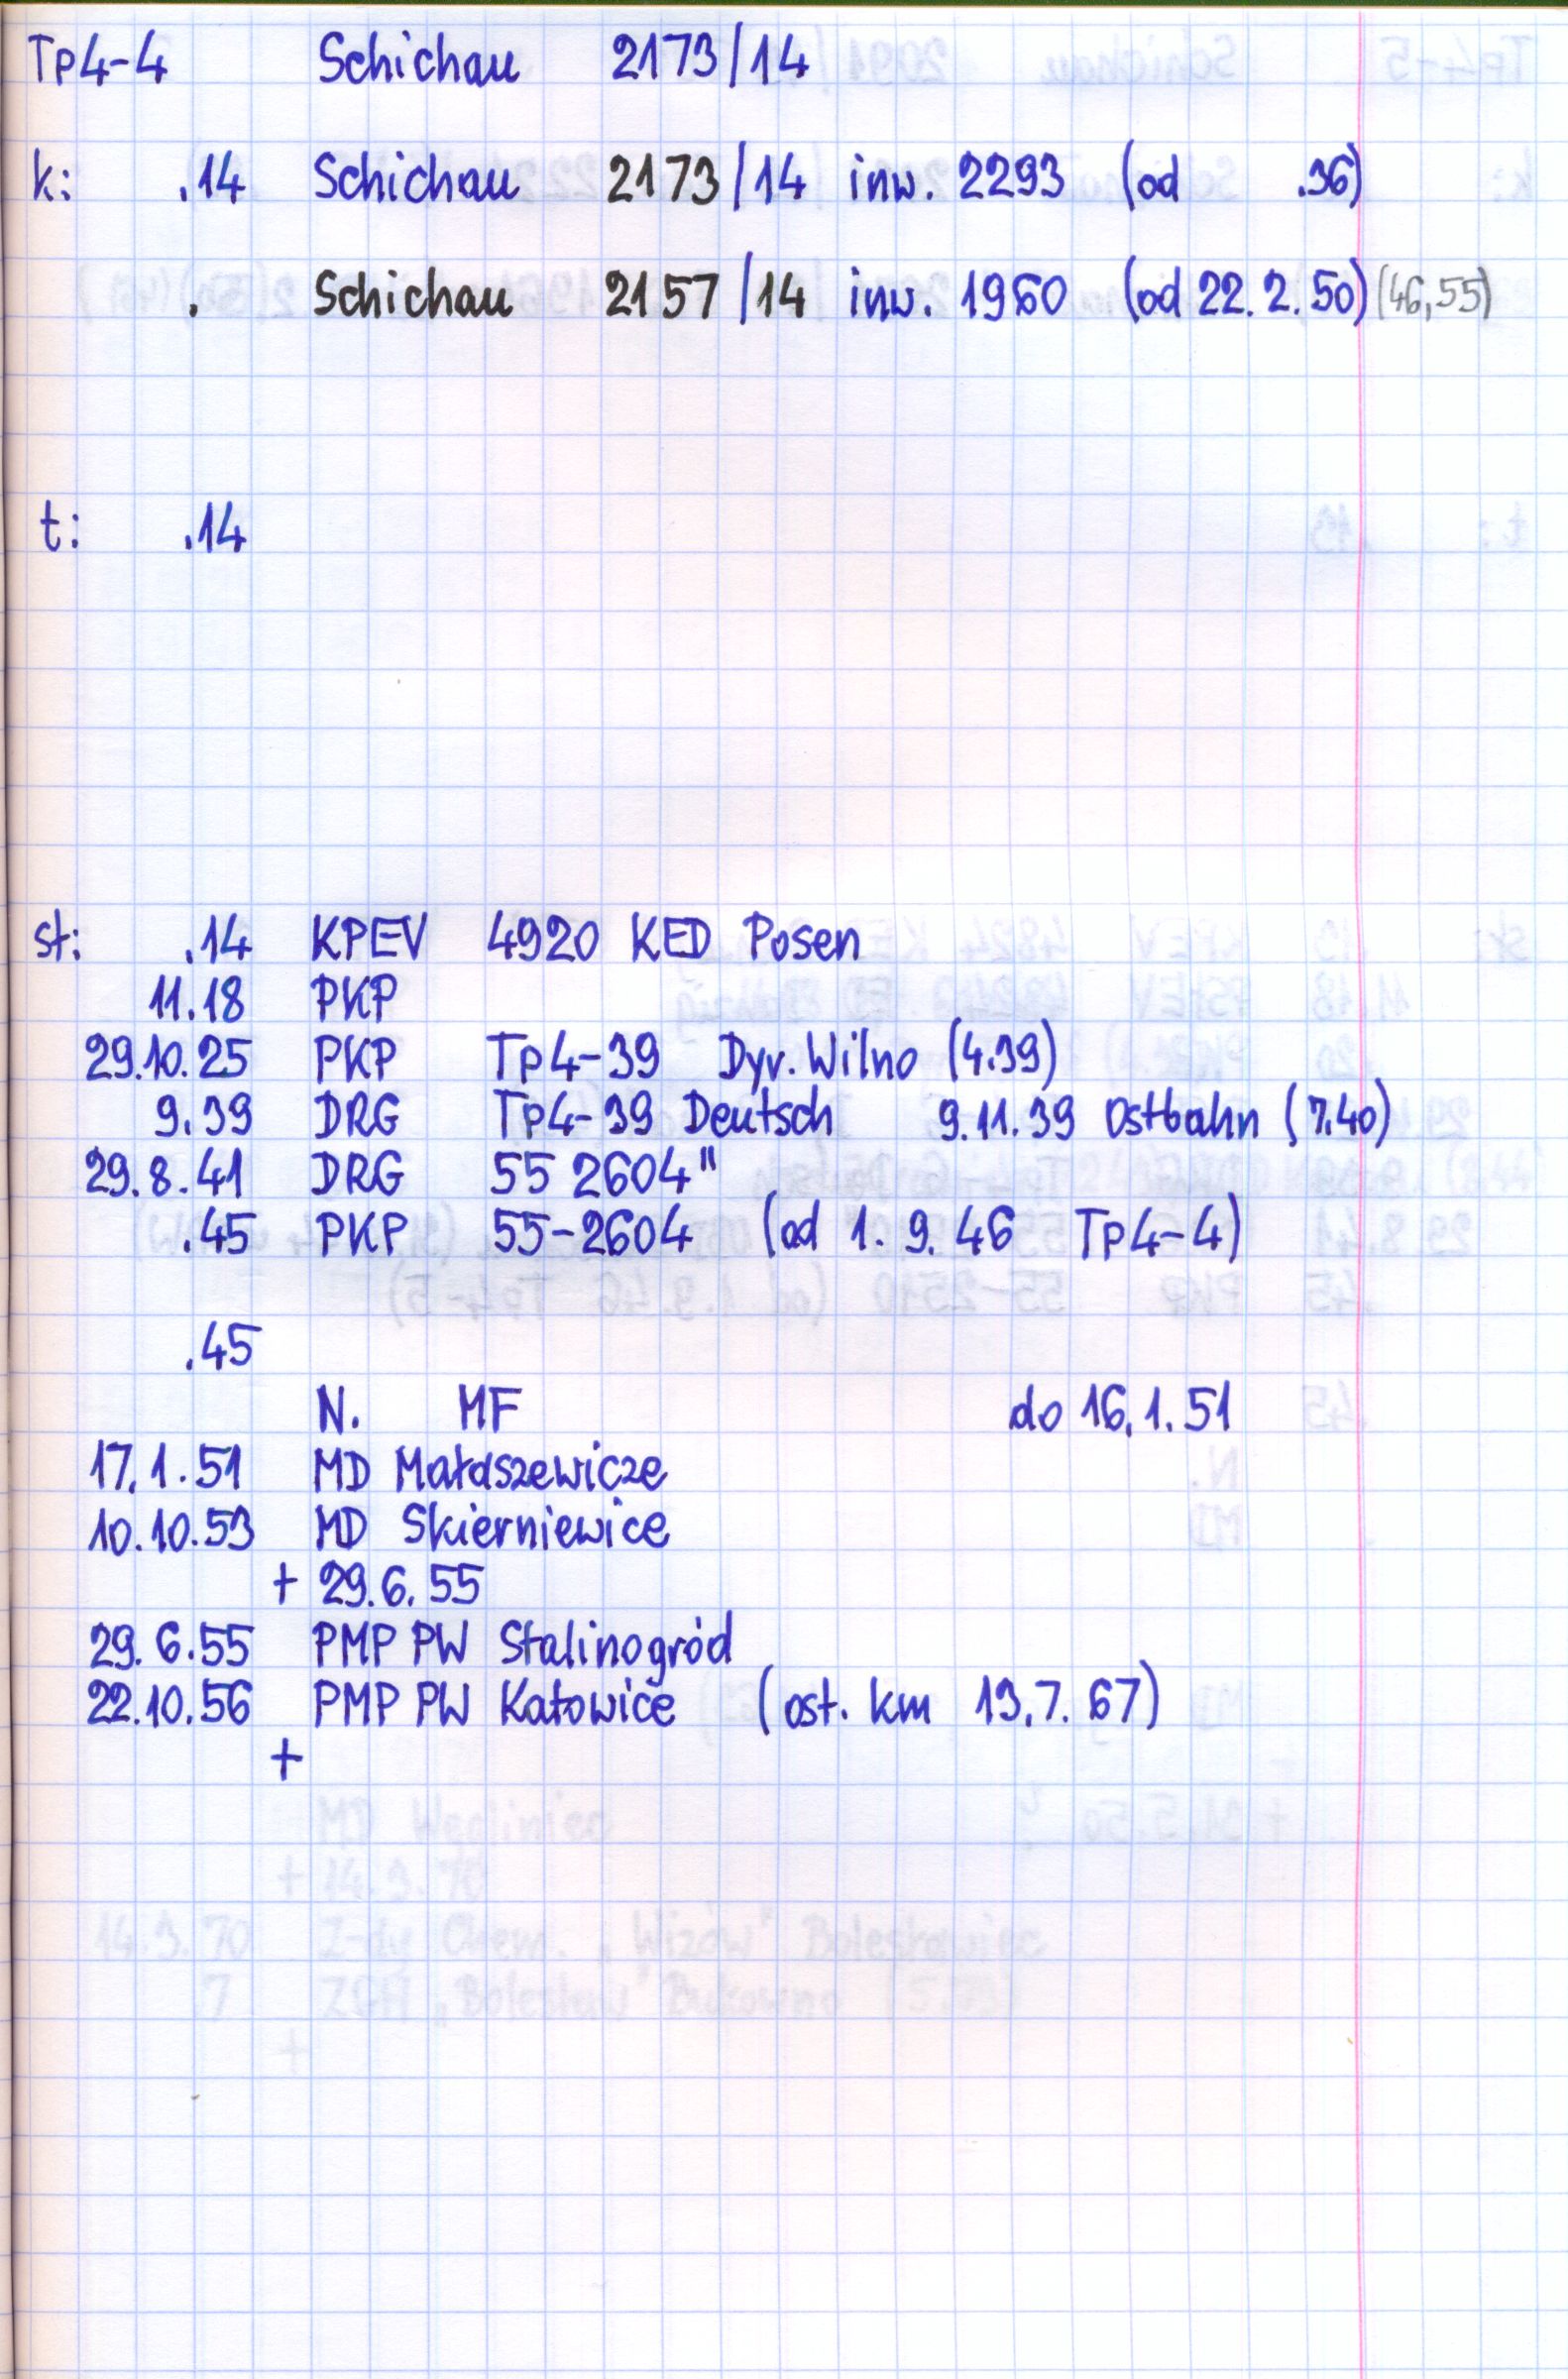 Tp4-4 Schichau 2173/14
k: .14 Schichau 2173/14 inw. 2293 (od .36)
. Schichau 2157/14 inw. 1960 (od 22.2.50) (46,55)
t: .14
st: .14 KPEV 4920 KED Posen
11.18 PKP
29.10.25 PKP Tp4-39 Dyr. Wilno (4.39)
9.39 DRG Tp4-39 Deutsch 9.11.39 Ostbahn (7.40)
29.8.41 DRG 55 2604"
.45 PKP 55-2604 (od 1.9.46 Tp4-4)
.45
N. MF do 16.1.51
17.1.51 MD Małaszewicze
10.10.53 MD Skierniewice
+ 29.6.55
29.6.55 PMP PW Stalinogród
22.10.56 PMP PW Katowice (ost. km 13.7.67)
+